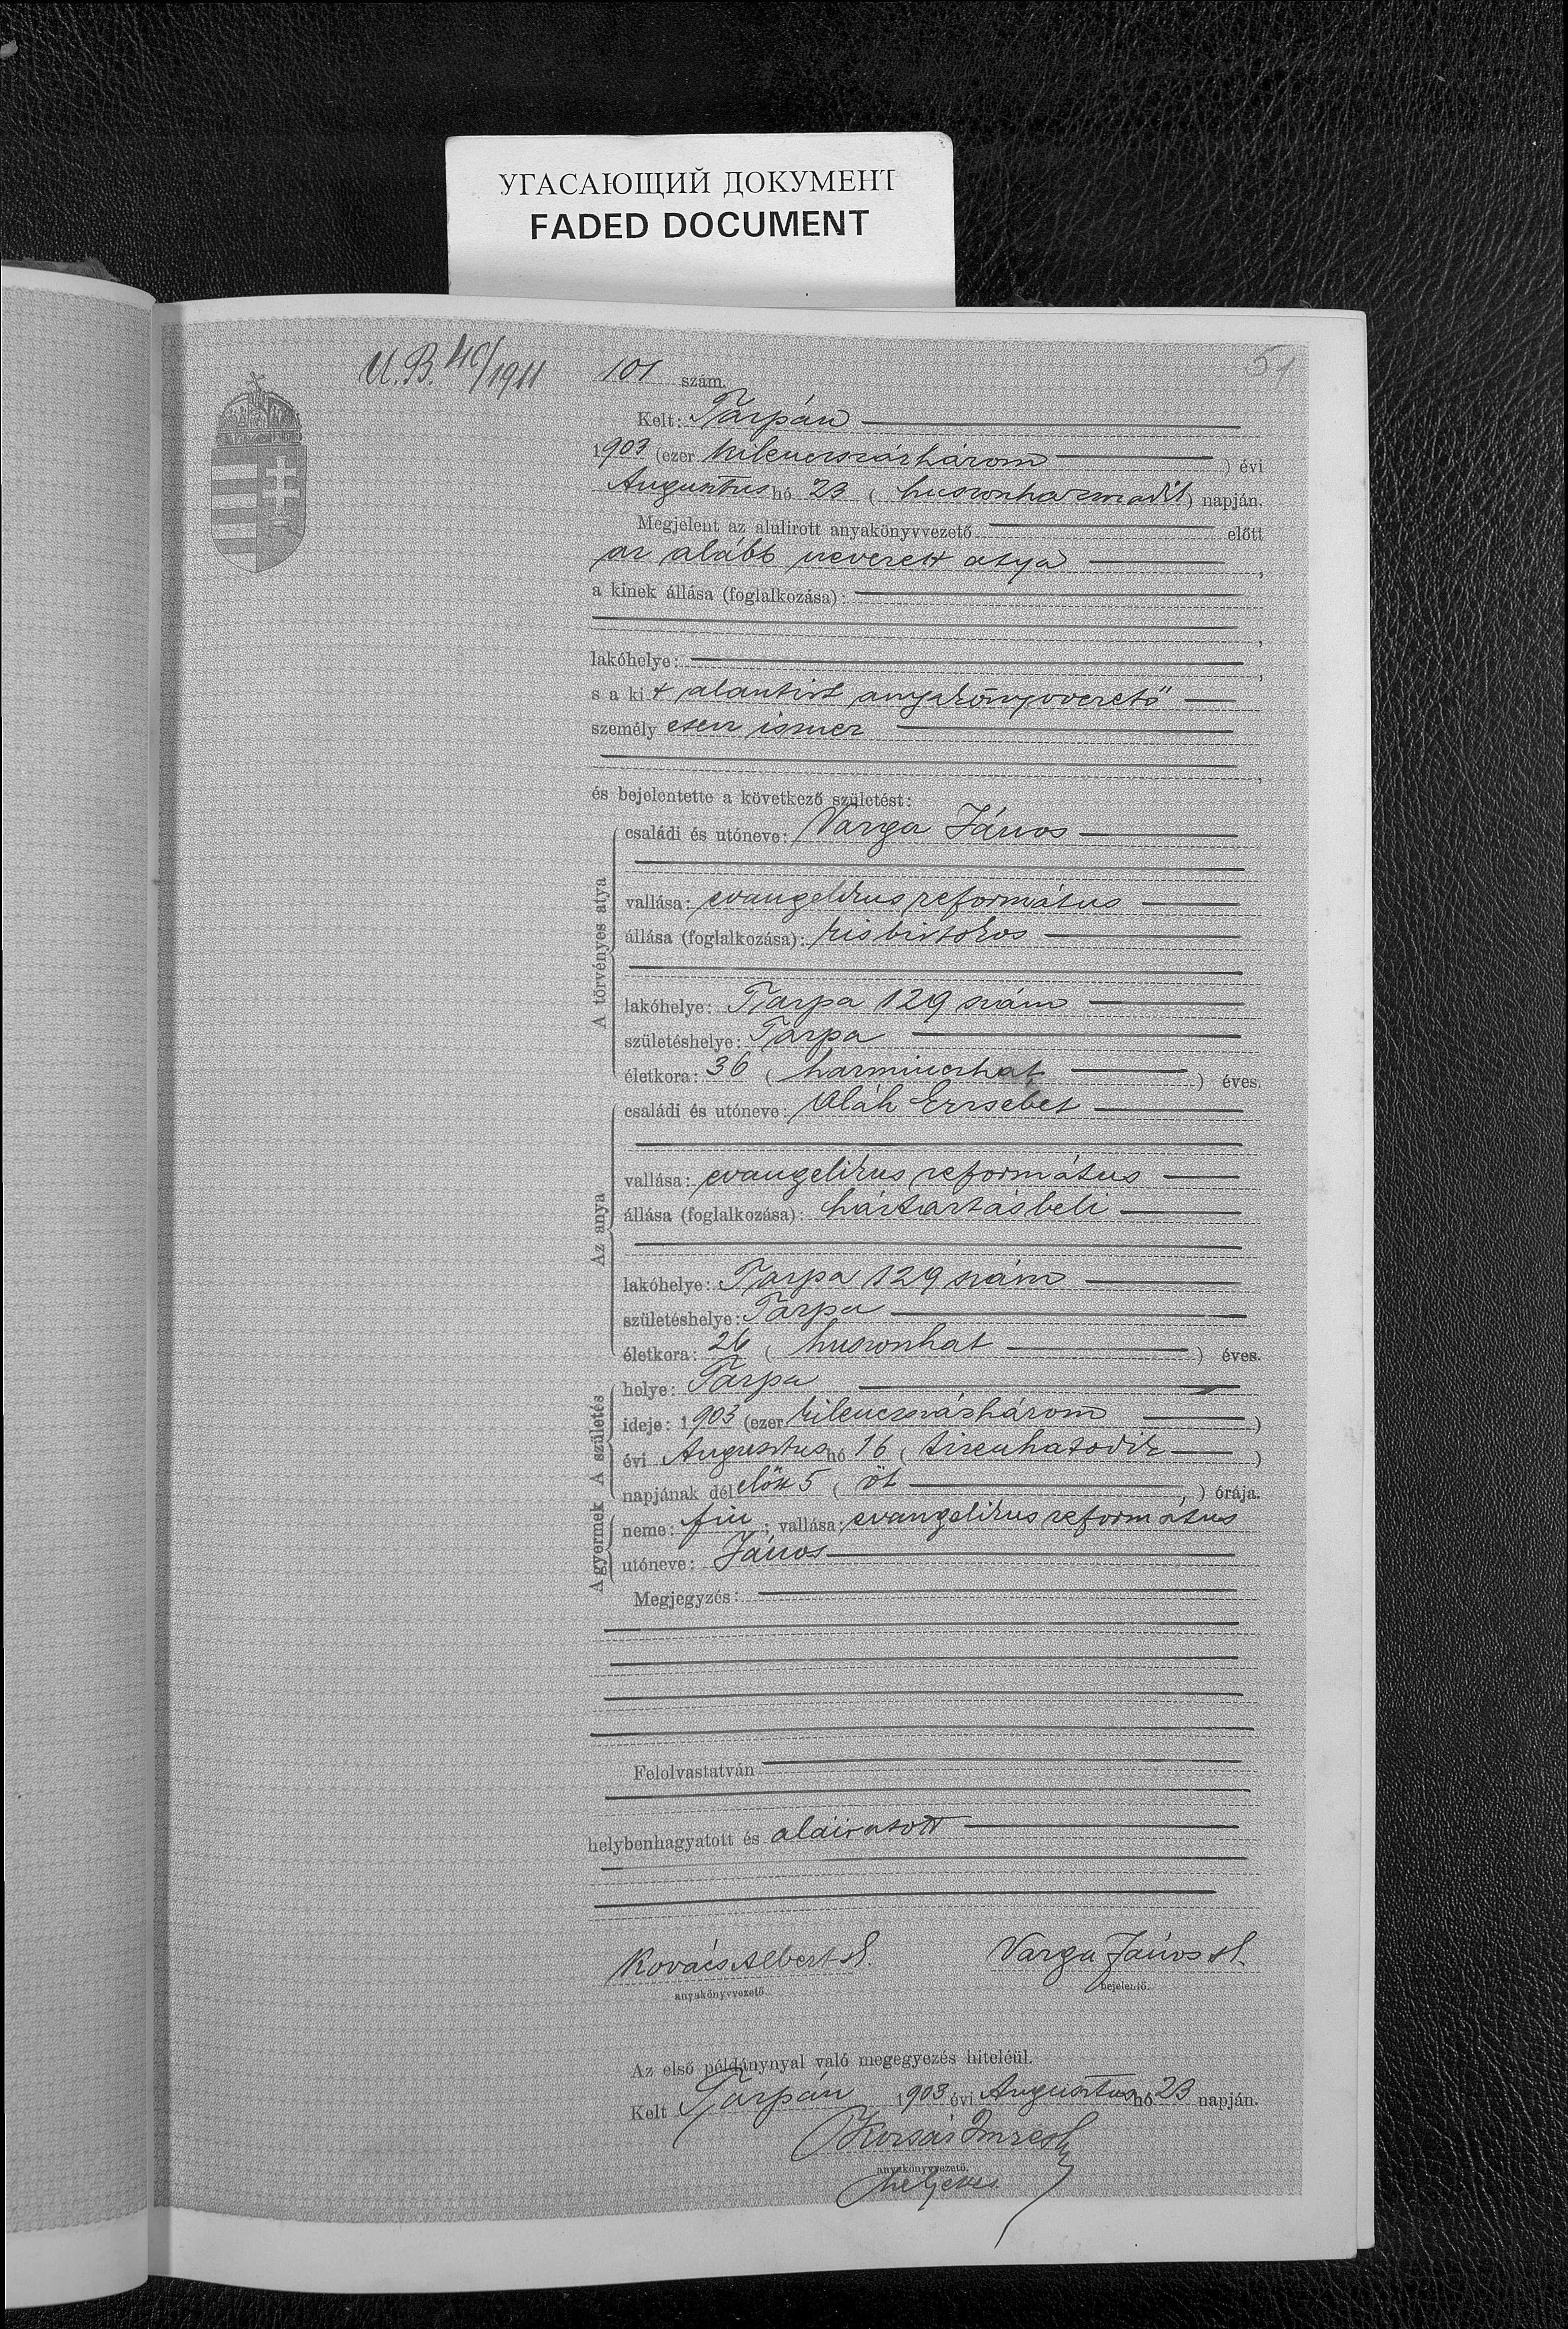 УГАСАЮЩИЙ ДОКУМЕНТ
FADED DOCUMENT
51
U.B. 40/1911
101 szám.
Kelt: Tarpán
1903 (ezer kilenczszázhárom) évi
Augusztus hó 23 (huszonharmadik) napján.
Megjelent az alulirott anyakönyvvezető előtt
az alább nevezett atya,
a kinek állása (foglalkozása):
lakóhelye:
s a kit alantirt anyakönyvvezető
személyesen ismer
és bejelentette a következő születést:
A törvényes atya
családi és utóneve: Varga János
vallása: evangelikus református
állása (foglalkozása): kisbirtokos
lakóhelye: Tarpa 129 szám
születéshelye: Tarpa
életkora: 36 (harminczhat) éves.
Az anya
családi és utóneve: Oláh Erzsebet
vallása: evangelikus református
állása (foglalkozása): háztartásbeli
lakóhelye: Tarpa 129 szám
születéshelye: Tarpa
életkora: 26 (huszonhat) éves.
A születés
helye: Tarpa
ideje: 1903 (ezer kilenczszázhárom)
évi Augusztus hó 16 (tizenhatodik)
napjának délelőtt 5 (öt) órája.
A gyermek
neme: fiu; vallása: evangelikus református
utóneve: János
Megjegyzés:
Felolvastatván
helybenhagyatott és aláiratott
Kovács Albert sk. Varga János sk.
anyakönyvvezető. bejelentő.
Az első példánynyal való megegyezés hiteléül.
Kelt Tarpán 1903 évi Augusztus hó 23 napján.
Imre
anyakönyvvezető.
helyettes